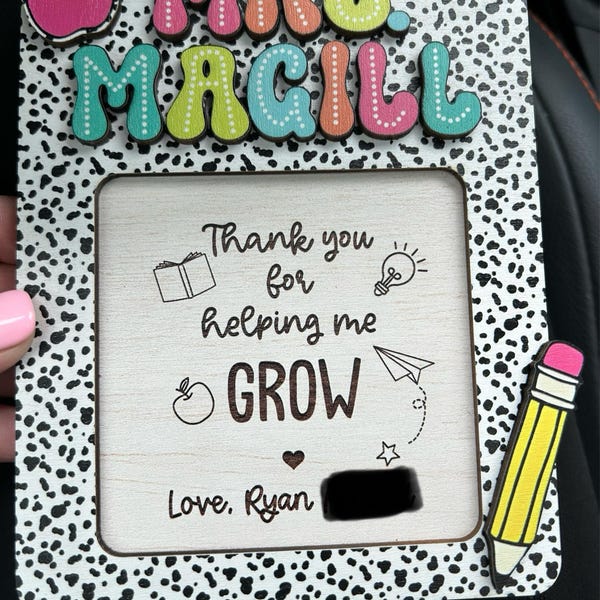 MRS.
MAGILL
Thank you
for
helping me
GROW
Love, Ryan